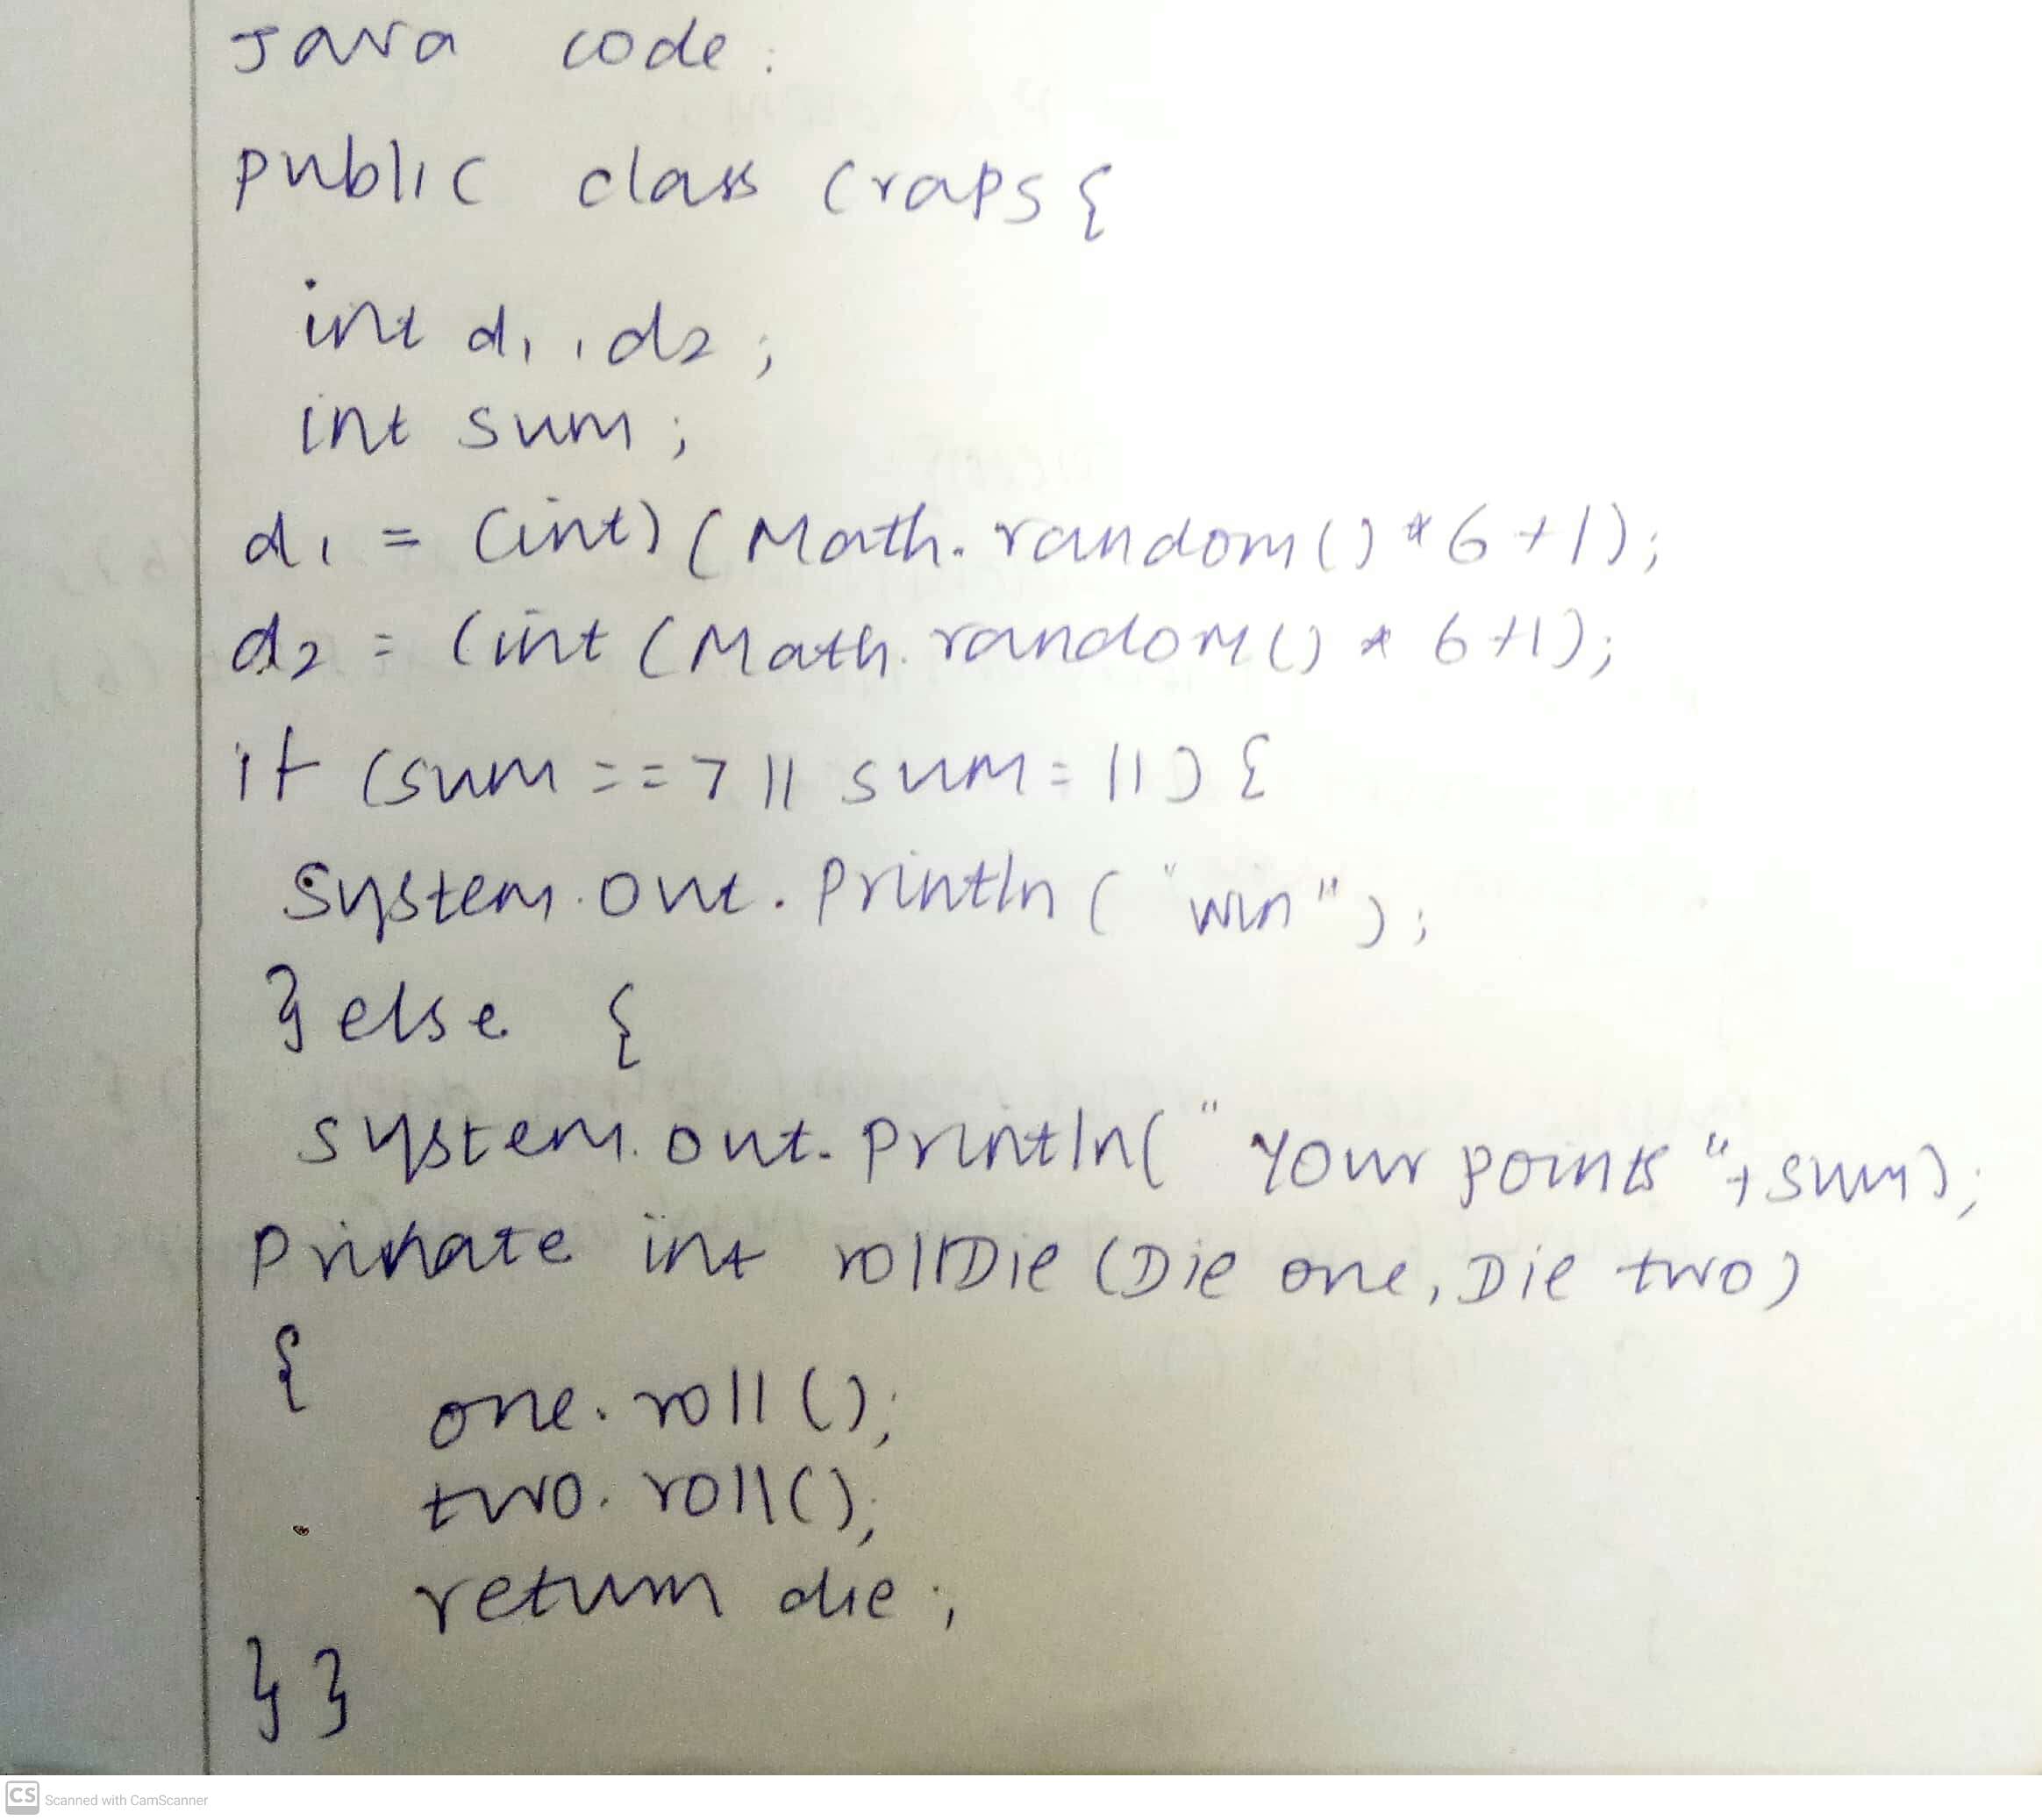 Java code:
public class Craps {
int d1, d2;
int sum;
d1 = (int) (Math.random() * 6 + 1);
d2 = (int (Math.random() * 6+1);
if (sum == 7 || sum = 11) {
System.out.println ("win");
} else {
system.out.println("Your points "+sum);
Private int rollDie (Die one, Die two)
{ one.roll();
two.roll();
return die;
} }
CS Scanned with CamScanner